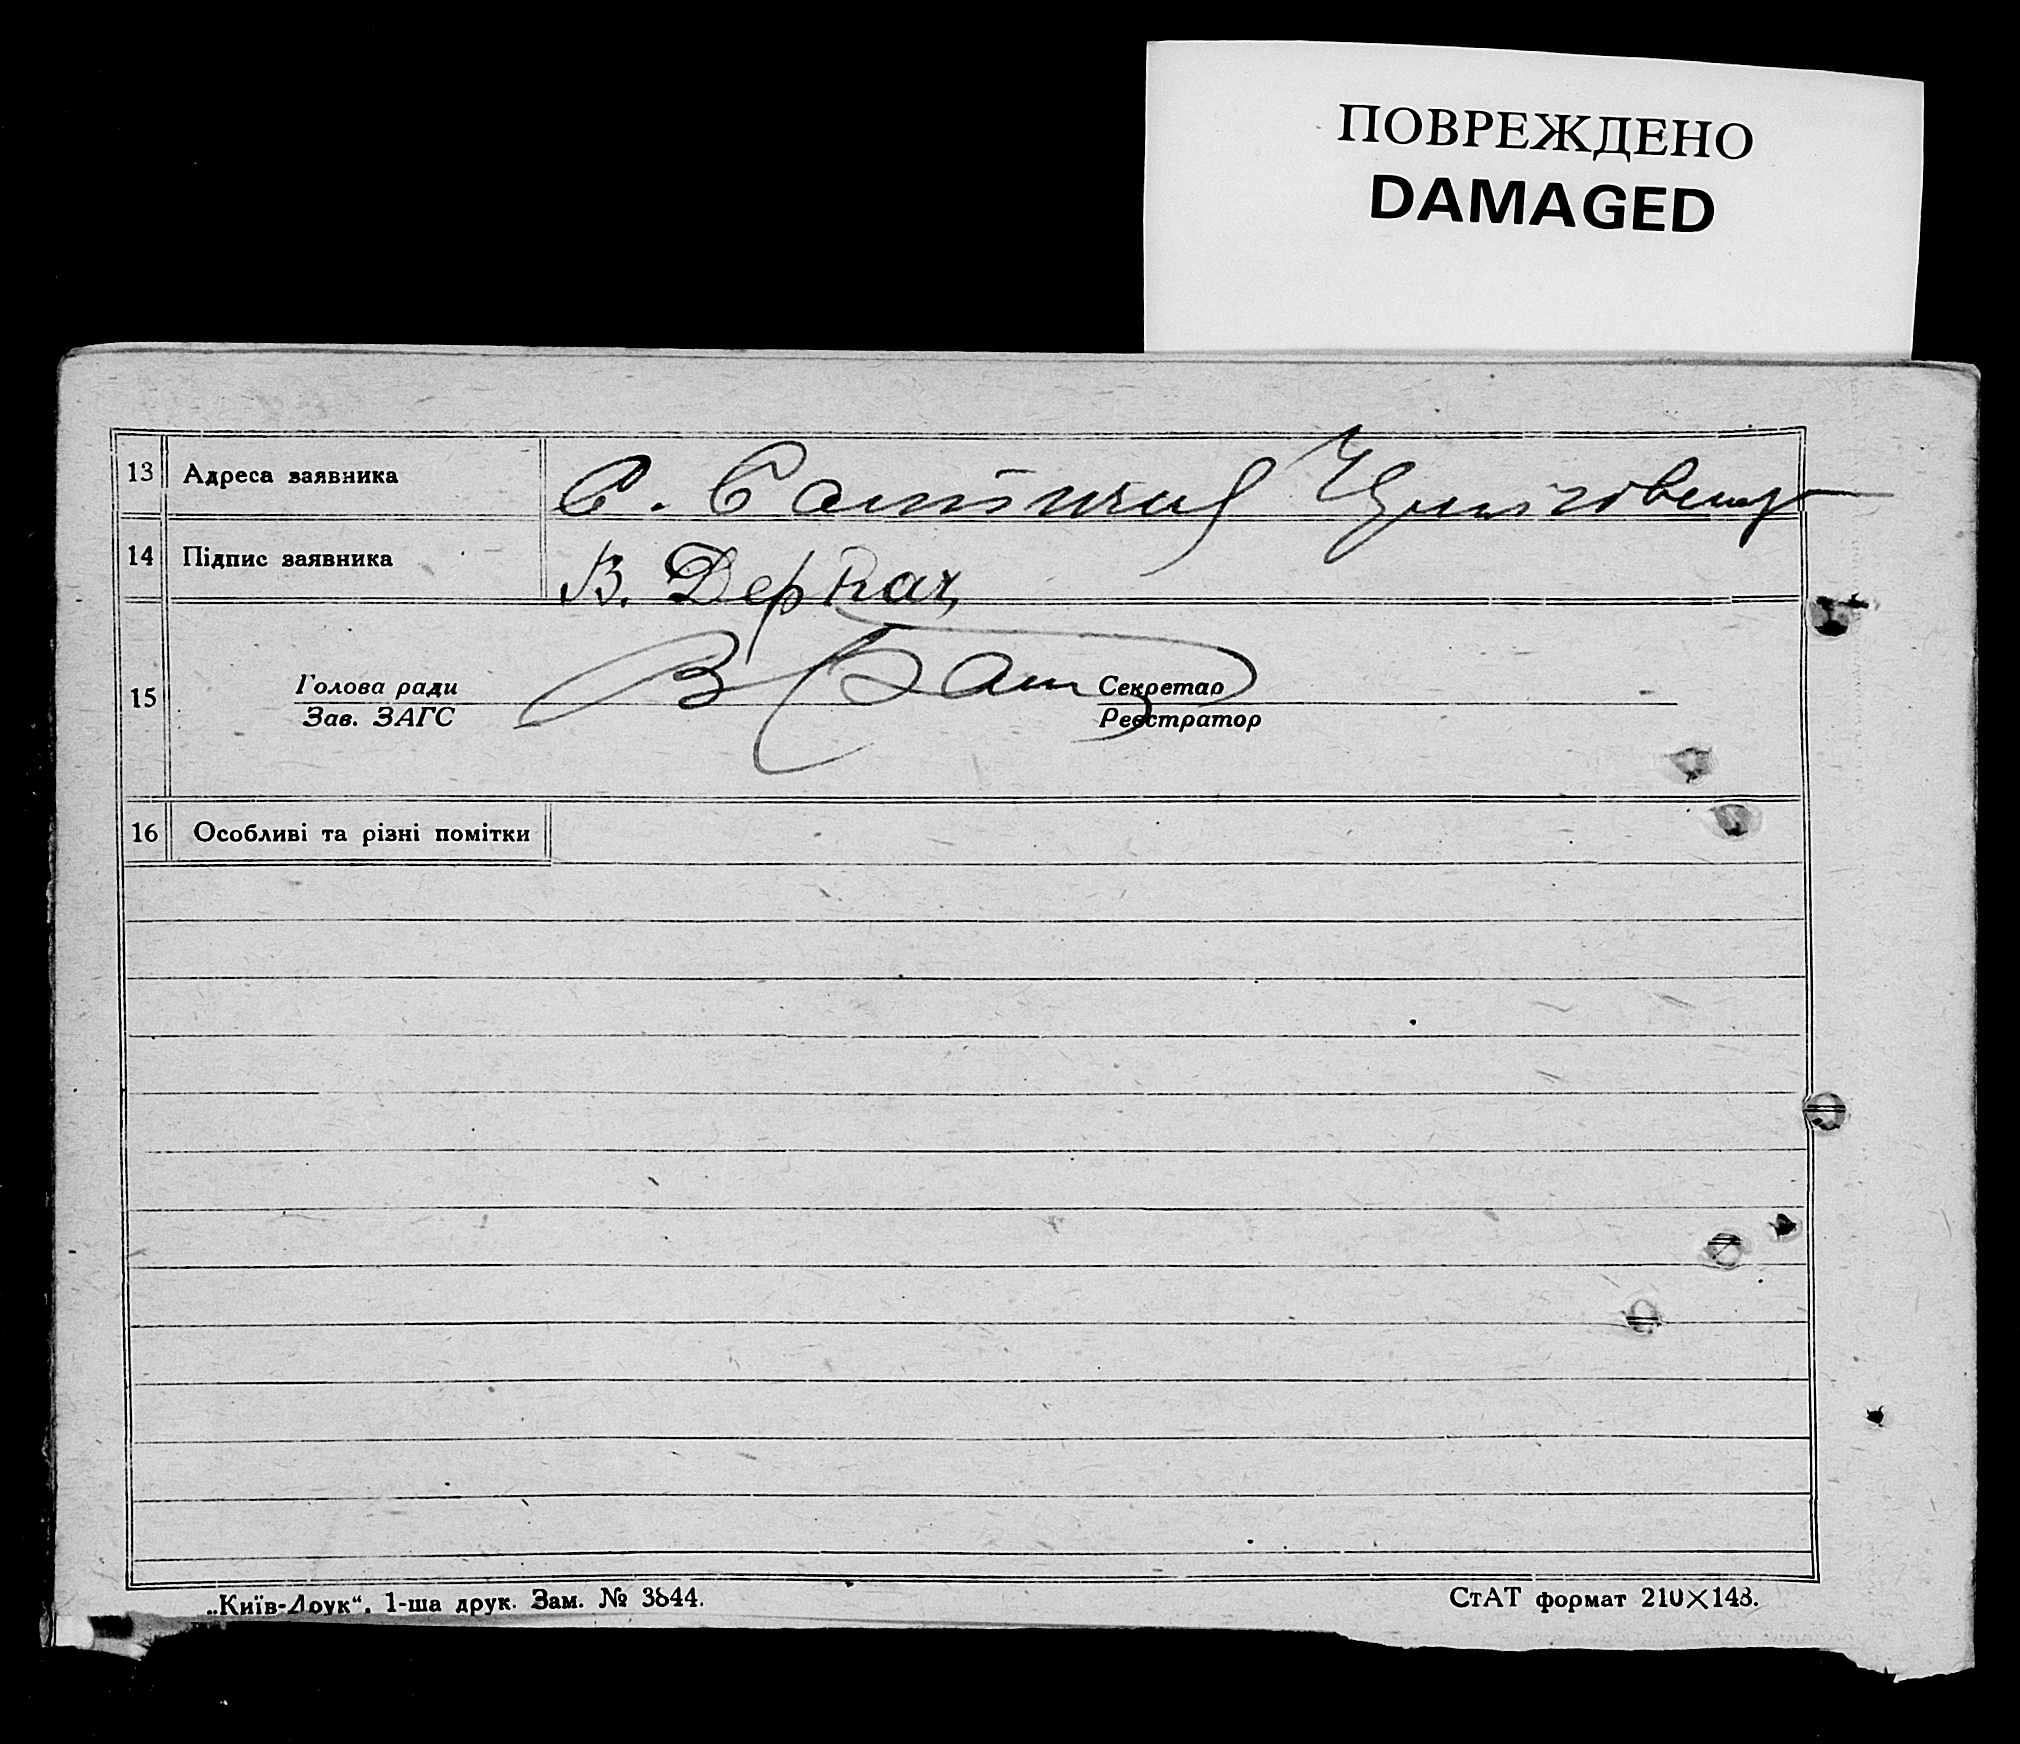 ПОВРЕЖДЕНО
DAMAGED
13 Адреса заявника С.
14 Підпис заявника В. Деркач
15 Голова ради Секретар
Зав. ЗАГС Реєстратор
16 Особливі та різні помітки
„Київ-Друк“, 1-ша друк. Зам. № 3844.
СтАТ формат 210×148.